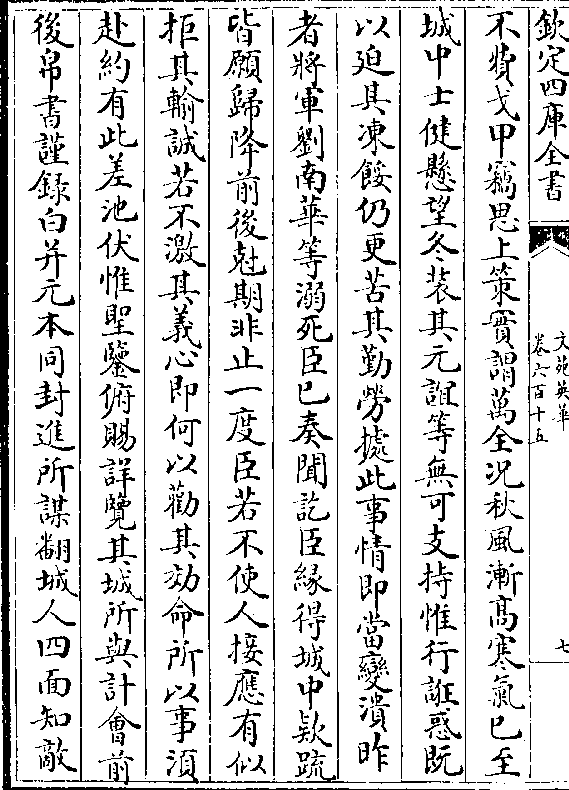 欽定四庫全書
文苑英華
卷六百十五
七
不費戈甲竊思上策實謂萬全况秋風漸髙寒氣已至
城中士健懸望冬装其元誼等無可支持惟行誑惑既
以廹其凍餒仍更苦其勤勞據此事情即當變潰昨
者將軍劉南華等溺死臣已奏聞訖臣緣得城中欵疏
皆願歸降前後尅期非止一度臣若不使人接應有似
拒其輸誠若不激其義心即何以勸其効命所以事湏
赴約有此差池伏惟聖鑒俯賜詳覽其城所與計會前
後帛書謹録白并元本同封進所謀翻城人四面知敵